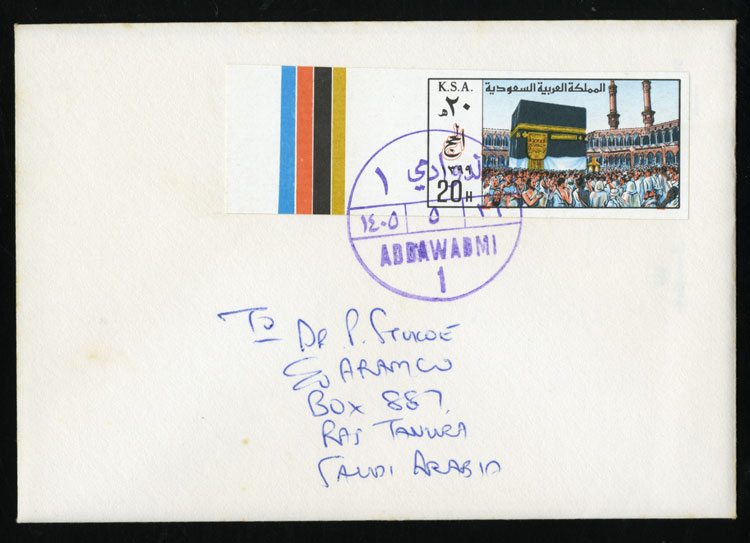 K.S.A.
المملكة العربية السعودية
٢٠ هـ
الحج
١٣٩٩
20 H
الدوادمي
١
١٤٠٥ ٥
ADDAWADMI
1
To
DR P.
C/O ARAMCO
BOX 887,
RAS TANURA
SAUDI ARABIA